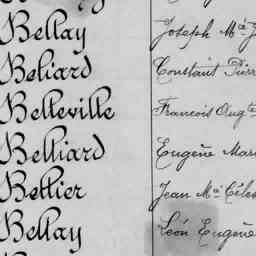 Bellay Joseph Ma J
Béliard Constant Pierr
Belleville Francois Augte
Belliard Eugène Mari
Bellier Jean Ma Céles
Bellay Léon Eugène